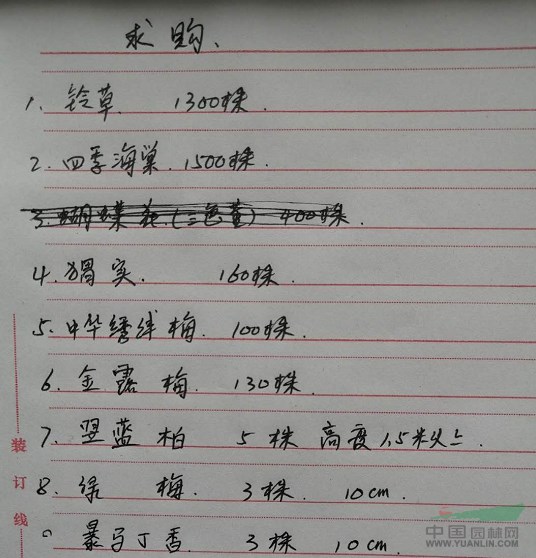 求购、
1. 铃草 1300株.
2. 四季海巢. 1500株.
3. 蝴蝶花.(三色堇) 400株.
4. 猬实. 160株.
5. 中华绣线梅. 100株.
6. 金露梅. 130株.
7. 翌蓝柏 5株 高度1.5米以上.
8. 绿梅. 3株. 10cm.
暴马丁香. 3株 10cm.
装
订
线
中国园林网
WWW.YUANLIN.COM